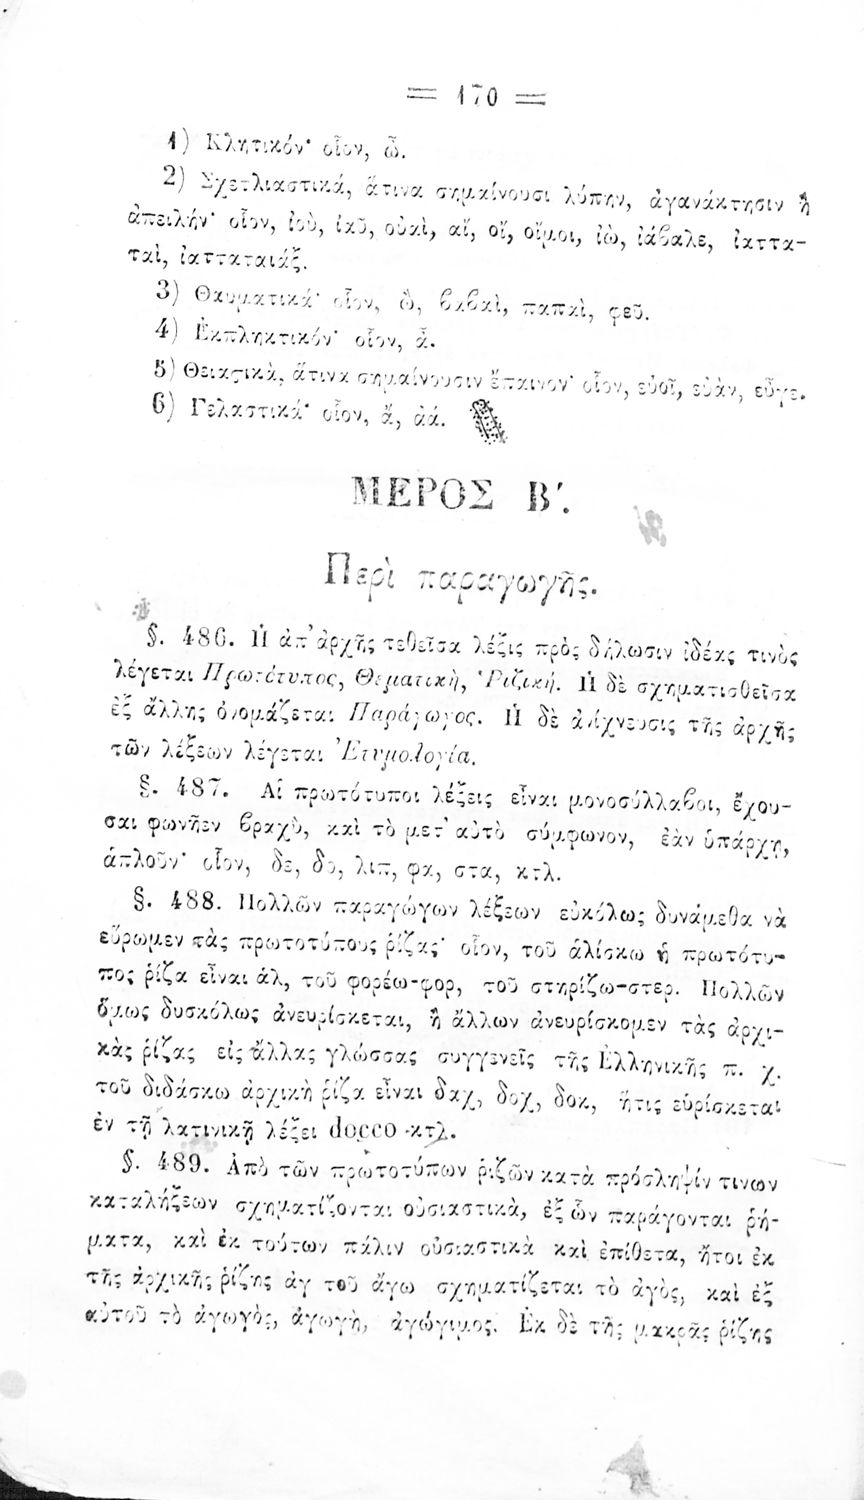 = 170 =
1) Κλητικόν· οἷον, ὦ.
2) Σχετλιαστικά, ἅτινα σημαίνουσι λύπην, ἀγανάκτησιν ἢ
ἀπειλήν· οἷον, ἰοὺ, ἰαῦ, οὐαὶ, αἴ, οἴ, οἴμοι, ἰὼ, ἰάβαλε, ἰαττα-
ταὶ, ἰατταταιάξ.
3) Θαυματικά· οἷον, ὢ, βαβαὶ, παπαὶ, φεῦ.
4) Ἐκπληκτικόν· οἷον, ἆ.
5) Θειαστικὰ, ἅτινα σημαίνουσιν ἔπαινον· οἷον, εὐοῖ, εὐὰν, εὖγε.
6) Γελαστικά· οἷον, ἅ, ἁά.
ΜΕΡΟΣ Β΄.
Περὶ παραγωγῆς.
§. 486. Ἡ ἀπ᾿ ἀρχῆς τεθεῖσα λέξις πρὸς δήλωσιν ἰδέας τινὸς
λέγεται Πρωτότυπος, Θεματικὴ, Ῥιζική. Ἡ δὲ σχηματισθεῖσα
ἐξ ἄλλης ὀνομάζεται Παράγωγος. Ἡ δὲ ἀνίχνευσις τῆς ἀρχῆς
τῶν λέξεων λέγεται Ἐτυμολογία.
§. 487. Αἱ πρωτότυποι λέξεις εἶναι μονοσύλλαβοι, ἔχου-
σαι φωνῆεν βραχὺ, καὶ τὸ μετ᾿ αὐτὸ σύμφωνον, ἐὰν ὑπάρχῃ,
ἁπλοῦν· οἷον, δε, δο, λιπ, φα, στα, κτλ.
§. 488. Πολλῶν παραγώγων λέξεων εὐκόλως δυνάμεθα νὰ
εὕρωμεν τὰς πρωτοτύπους ῥίζας· οἷον, τοῦ ἁλίσκω ἡ πρωτότυ-
πος ῥίζα εἶναι ἁλ, τοῦ φορέω-φορ, τοῦ στηρίζω-στερ. Πολλῶν
ὅμως δυσκόλως ἀνευρίσκεται, ἢ ἄλλων ἀνευρίσκομεν τὰς ἀρχι-
κὰς ῥίζας εἰς ἄλλας γλώσσας συγγενεῖς τῆς Ἑλληνικῆς π. χ.
τοῦ διδάσκω ἀρχικὴ ῥίζα εἶναι δαχ, δοχ, δοκ, ἥτις εὑρίσκεται
ἐν τῇ λατινικῇ λέξει docco κτλ.
§. 489. Ἀπὸ τῶν πρωτοτύπων ῥιζῶν κατὰ πρόσληψίν τινων
καταλήξεων σχηματίζονται οὐσιαστικὰ, ἐξ ὧν παράγονται ῥή-
ματα, καὶ ἐκ τούτων πάλιν οὐσιαστικὰ καὶ ἐπίθετα, ἤτοι ἐκ
τῆς ἀρχικῆς ῥίζης ἀγ τοῦ ἄγω σχηματίζεται τὸ ἀγὸς, καὶ ἐξ
αὐτοῦ τὸ ἀγωγὸς, ἀγωγὴ, ἀγώγιμος. Ἐκ δὲ τῆς μακρᾶς ῥίζης